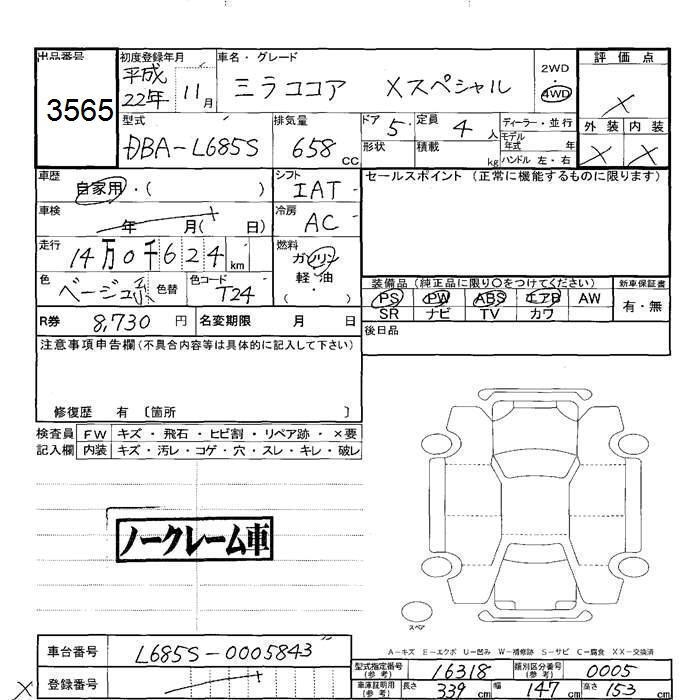 出品番号 初度登録年月 車名・グレード 2WD 評価点
3565 平成22年 11月 ミラココア Xスペシャル 4WD X
型式 排気量 ドア 定員 ディーラー・並行 外装 内装
DBA-L685S 658cc 5 4人 モデル年式 年 X X
形状 積載 kg ハンドル 左・右
車歴 シフト セールスポイント(正常に機能するものに限ります)
自家用・( ) IAT
車検 冷房
年 月( 日) AC
走行 燃料
14万0千624km ガソリン
色 色替 色コード 軽油
ベージュ T24 ( )
装備品(純正品に限り○をつけてください) 新車保証書
PS PW ABS エアB AW 有・無
SR ナビ TV カワ
R券 8,730円 名変期限 月 日
後日品
注意事項申告欄(不具合内容等は具体的に記入して下さい)
修復歴 有 〔箇所 〕
検査員 FW キズ・飛石・ヒビ割・リペア跡・×要
記入欄 内装 キズ・汚レ・コゲ・穴・スレ・キレ・破レ
ノークレーム車
スペア
A-キズ E-エクボ U-凹み W-補修跡 S-サビ C-腐食 XX-交換済
車台番号 L685S-0005843
型式指定番号(参考) 16318 類別区分番号(参考) 0005
X 登録番号
車庫証明用(参考) 長さ 339cm 幅 147cm 高さ 153cm